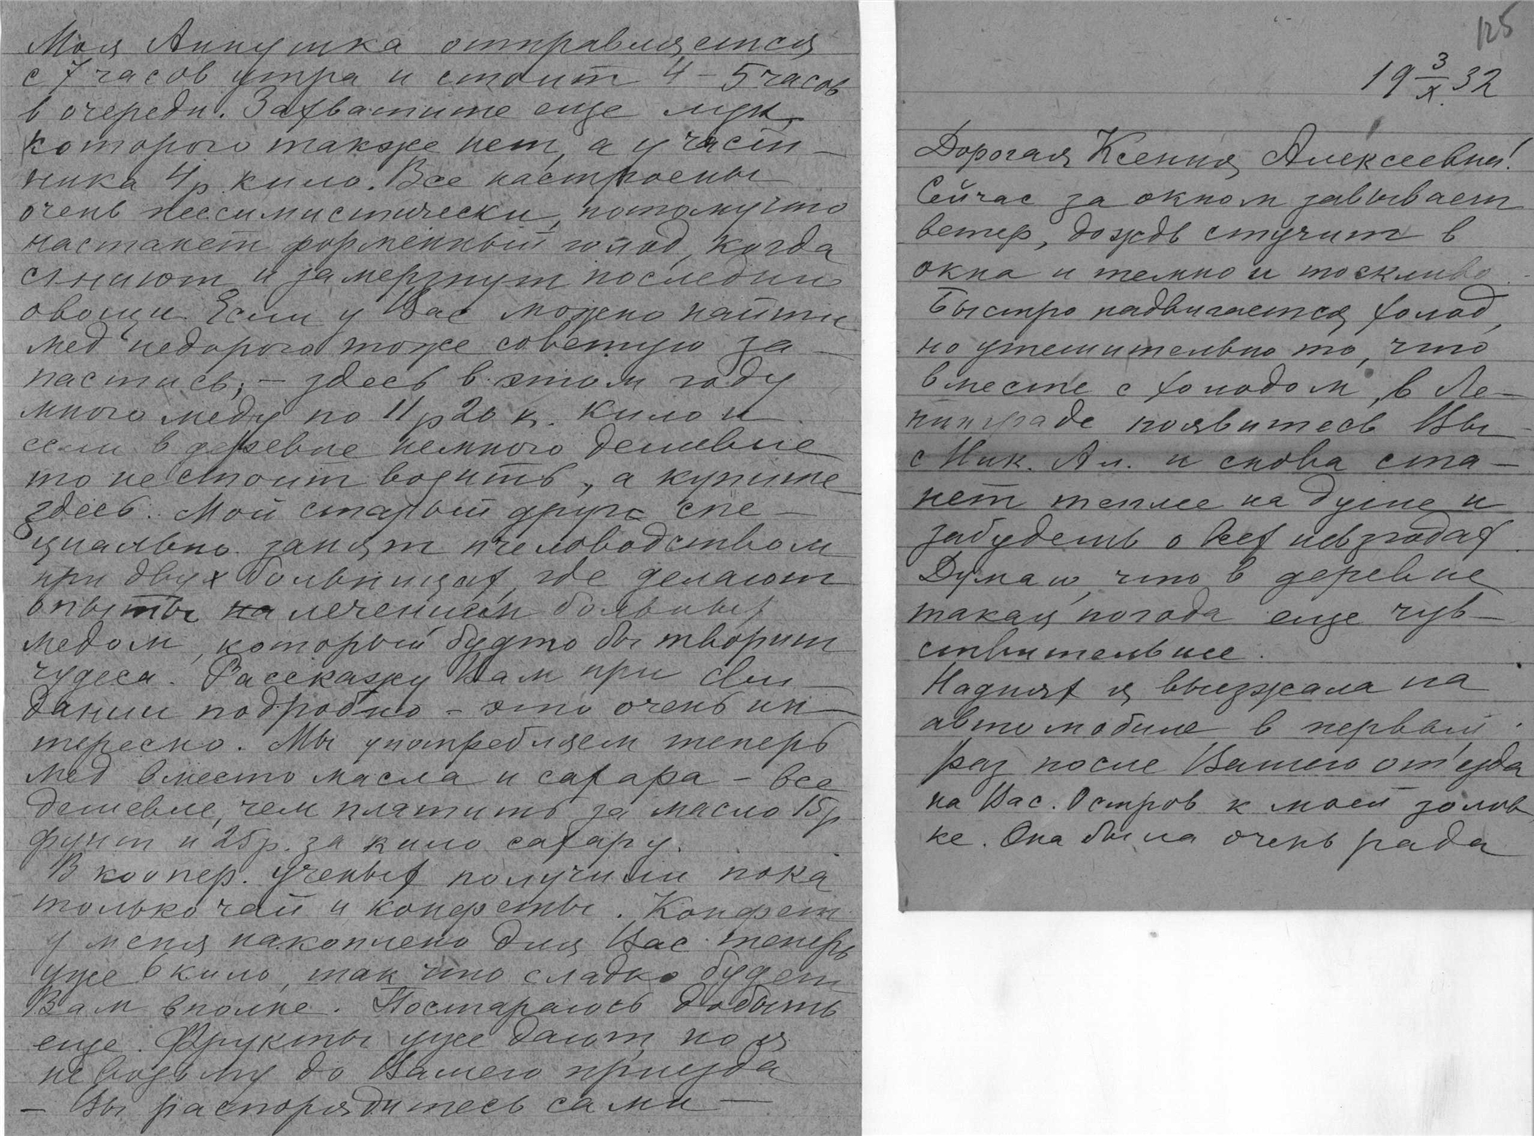 Моя Аннушка отправляется
с 7 часов утра и стоит 4 – 5 часов
в очереди. Захватите еще лук,
которого также нет, а у част-
ника 4 р кило. Все настроены
очень пессимистически, потому что
настанет форменный голод, когда
сгниют и замерзнут последние
овощи. Если у Вас можно найти
мед недорого тоже советую за-
пастись, – здесь в этом году
много меду по 11 р 20 к. кило и
если в деревне немного дешевле
то не стоит возить, а купите
здесь. Мой старый друг спе-
циально занят пчеловодством
при двух больницах, где делают
опыты на лечением больных
медом, который будто бы творит
чудеса. Расскажу Вам при сви-
дании подробно – это очень ин-
тересно. Мы употребляем теперь
мед вместо масла и сахара – все
дешевле, чем платить за масло 15 р
фунт и 25 р. за кило сахару.
В коопер. ученых получили пока
только чай и конфеты. Конфет
у меня накоплено для Вас теперь
уже кило, так что сладко будет
Вам вполне. Постараюсь добыть
еще. Фрукты уже дают, но я
не возьму до Вашего приезда
– Вы распорядитесь сами –
125
19 3/X 32
Дорогая Ксения Алексеевна!
Сейчас за окном завывает
ветер, дождь стучит в
окна и темно и тоскливо.
Быстро надвигается холод,
но утешительно то, что
вместе с холодом, в Ле-
нинграде появитесь Вы
с Ник. Ал. и снова ста-
нет теплее на душе и
забудешь о всех невзгодах.
Думаю, что в деревне
такая погода еще чув-
ствительнее.
Надних я выезжала на
автомобиле в первый
раз после Вашего отъезда
на Вас. Остров к моей золов
ке. Она была очень рада